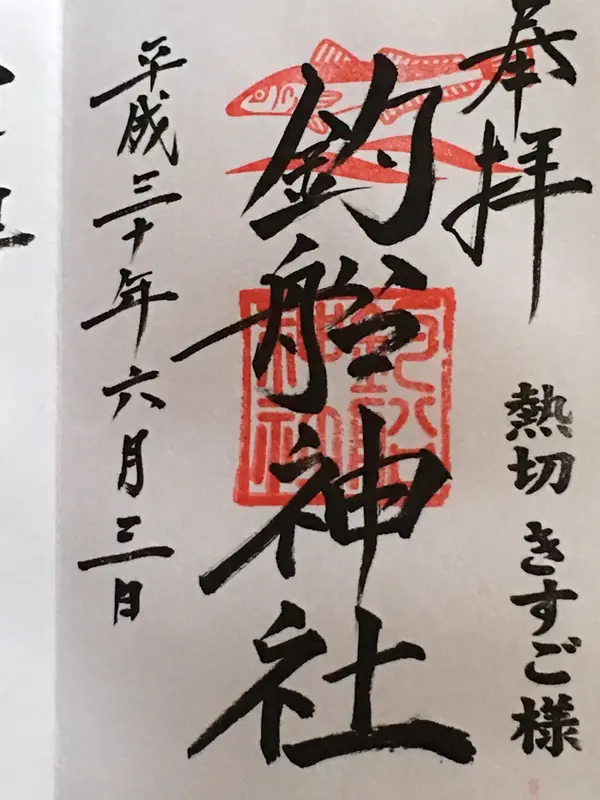 奉拝
熱切 きすご様
釣船神社
平成三十年六月三日